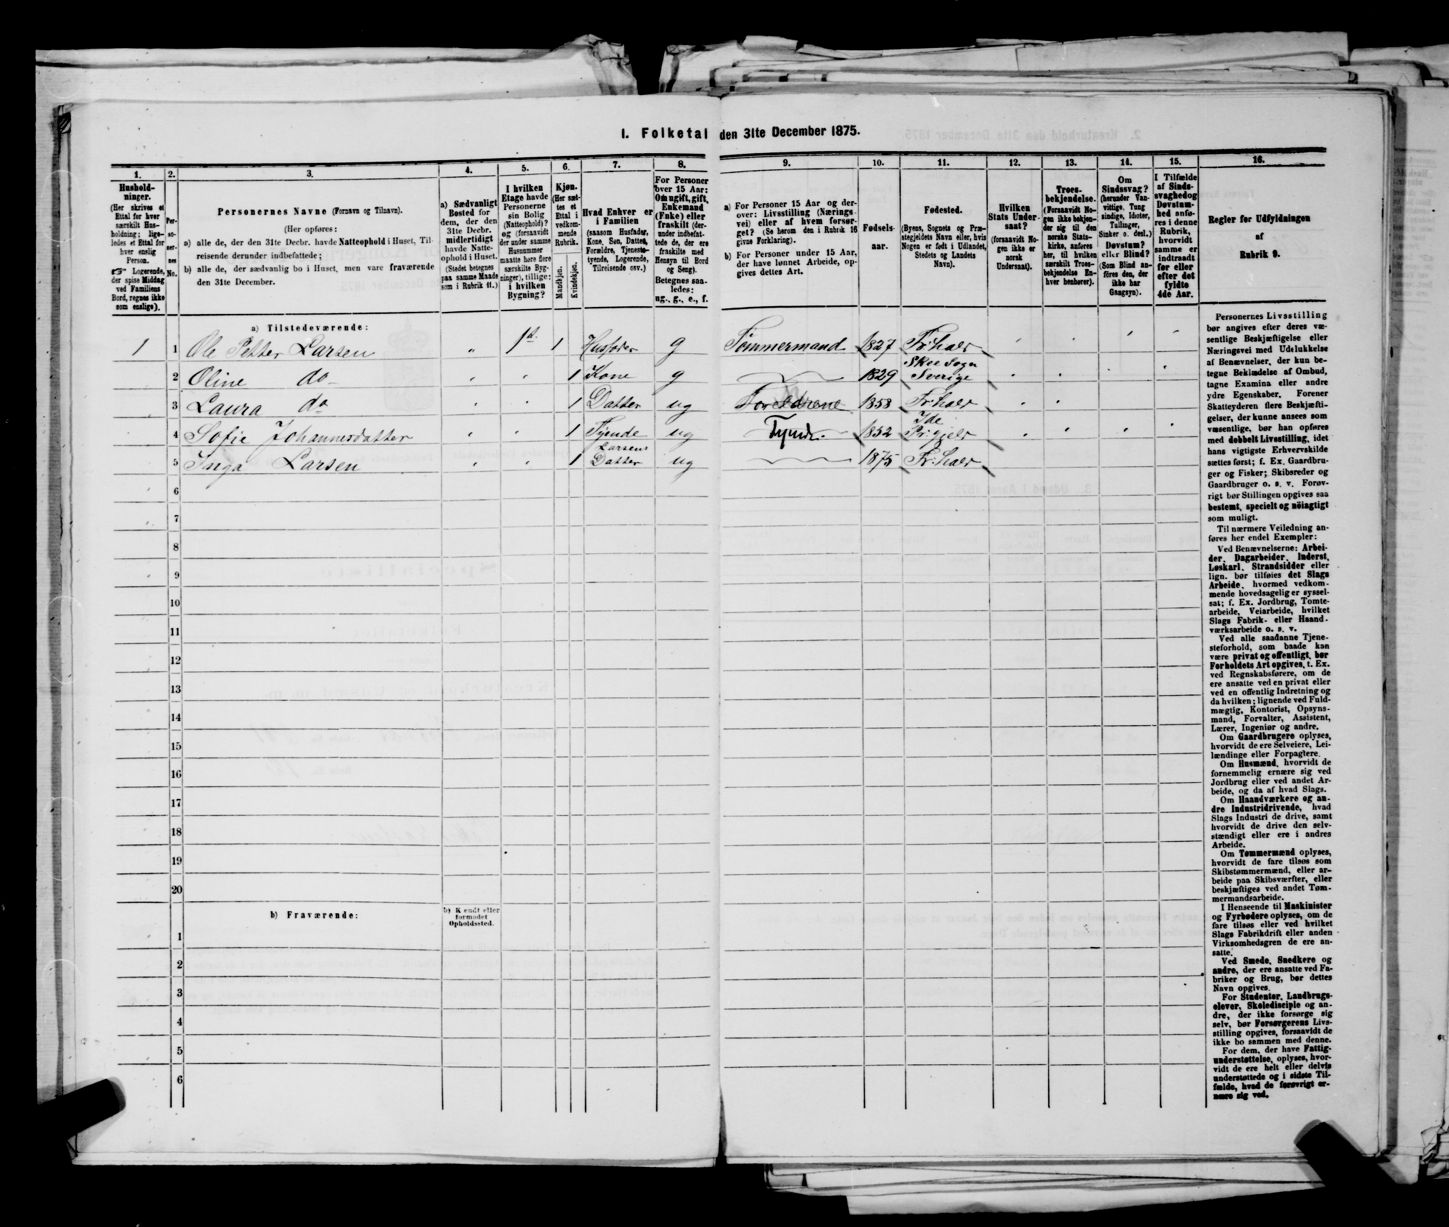 1. Folketal den 31te December 1875.
1. 2. 3. 4. 5. 6. 7. 8. 9. 10. 11. 12. 13. 14. 15. 16.
Hushold-
ninger.
(Her skrives et
Ettal for hver
særskilt Hus-
holdning; lige-
ledes et Ettal for
hver enslig
Person.
☞ Logerende,
der spise Middag
ved Familiens
Bord, regnes ikke
som enslige).
Per-
so-
ner-
nes
No.
Personernes Navne (Fornavn og Tilnavn).
(Her opføres:
a) alle de, der den 31te Decbr. havde Natteophold i Huset, Til-
reisende derunder indbefattede;
b) alle de, der sædvanlig bo i Huset, men vare fraværende
den 31te December.
a) Sædvanligt
Bosted for
dem, der den
31te Decbr.
midlertidigt
havde Natte-
ophold i Huset.
(Stedet betegnes
paa samme Maade
som i Rubrik 11.)
I hvilken
Etage havde
Personerne
sin Bolig
(Natteophold)?
og (forsaavidt
der under samme
Husnummer
maatte høre flere
særskilte Byg-
ninger), tillige:
i hvilken
Bygning?
Kjøn.
(Her sæt-
tes et
Ettal i
vedkom-
mende
Rubrik.
Mandkjøn.
Kvindekjøn.
Hvad Enhver er
i Familien
(saasom Husfader,
Kone, Søn, Datter,
Forældre, Tjeneste-
tyende, Logerende,
Tilreisende osv.)
For Personer
over 15 Aar:
Om ugift, gift,
Enkemand
(Enke) eller
fraskilt (der-
under indbefat-
tede de, der ere
fraskilte med
Hensyn til Bord
og Seng).
Betegnes saa-
ledes:
ug., g., e., f.
a) For Personer 15 Aar og der-
over: Livsstilling (Nærings-
vei) eller af hvem forsør-
get? (Se herom den i Rubrik 16
givne Forklaring).
b) For Personer under 15 Aar,
der have lønnet Arbeide, op-
gives dettes Art.
Fødsels-
aar.
Fødested.
(Byens, Sognets og Præ-
stegjeldets Navn eller, hvis
Nogen er født i Udlandet,
Stedets og Landets
Navn).
Hvilken
Stats Under-
saat?
(forsaavidt No-
gen ikke er
norsk
Undersaat).
Troes-
bekjendelse.
(Forsaavidt No-
gen ikke bekjen-
der sig til den
norske Stats-
kirke, anføres
her, til hvilken
særskilt Troes-
bekjendelse En-
hver henhører).
Om
Sindssvag?
(herunder Van-
vittige, Tung-
sindige, Idioter,
Tullinger,
Sinker o. desl.)
Døvstum?
eller Blind?
(Som Blind an-
føres den, der
ikke har
Gangsyn).
I Tilfælde
af Sinds-
svaghed og
Døvstum-
hed anfø-
res i denne
Rubrik,
hvorvidt
samme er
indtraadt
før eller
efter det
fyldte
4de Aar.
Regler for Udfyldningen
af
Rubrik 9.
a) Tilstedeværende:
1 1 Ole Petter Larsen " 1st 1 Husfader g Tømmermand 1827 Fr:hald
2 Oline do " 1 Kone g 1829 Skee Sogn Sverige
3 Laura do 1 Datter ug Forældrene 1858 Fr:hald
4 Sofie Johannesdatter 1 Tyende ug Tyende 1852 Ide Pr:gjeld
5 Inga Larsen 1 Larsens Datter ug 1875 Fr:hald
6
7
8
9
10
11
12
13
14
15
16
17
18
19
20
b) Fraværende:
b) Kendt eller
formodet
Opholdssted.
1
2
3
4
5
6
Personernes Livsstilling
bør angives efter deres væ-
sentlige Beskjæftigelse eller
Næringsvei med Udelukkelse
af Benævnelser, der kun be-
tegne Beklædelse af Ombud,
tagne Examina eller andre
ydre Egenskaber. Forener
Skatteyderen flere Beskjæfti-
gelser, der kunne ansees som
væsentlige, bør han opføres
med dobbelt Livsstilling, idet
hans vigtigste Erhvervskilde
sættes først; f. Ex. Gaardbru-
ger og Fisker; Skibsreder og
Gaardbruger o. s. v. Forøv-
rigt bør Stillingen opgives saa
bestemt, specielt og nöiagtigt
som muligt.
Til nærmere Veiledning an-
føres her endel Exempler:
Ved Benævnelserne: Arbei-
der, Dagarbeider, Inderst,
Løskarl, Strandsidder eller
lign. bør tilføies det Slags
Arbeide, hvormed vedkom-
mende hovedsagelig er syssel-
sat; f. Ex. Jordbrug, Tomte-
arbeide, Veiarbeide, hvilket
Slags Fabrik- eller Haand-
værksarbeide o. s. v.
Ved alle saadanne Tjene-
steforhold, som baade kan
være privat og offentligt, bør
Forholdets Art opgives, t. Ex.
ved Regnskabsførere, om de
ere ansatte ved en privat eller
ved en offentlig Indretning og
da hvilken; lignende ved Fuld-
mægtig, Kontorist, Opsyns-
mand, Forvalter, Assistent,
Lærer, Ingeniør og andre.
Om Gaardbrugere oplyses,
hvorvidt de ere Selveiere, Lei-
lændinge eller Forpagtere.
Om Husmænd, hvorvidt de
fornemmelig ernære sig ved
Jordbrug eller ved andet Ar-
beide, og da af hvad Slags.
Om Haandværkere og an-
dre Industridrivende, hvad
Slags Industri de drive, samt
hvorvidt de drive den selv-
stændigt eller ere i andres
Arbeide.
Om Tømmermænd oplyses,
hvorvidt de fare tilsøs som
Skibstømmermænd, eller ar-
beide paa Skibsværfter, eller
beskjæftiges ved andet Tøm-
mermandsarbeide.
I Henseende til Maskinister
og Fyrbødere oplyses, om de
fare tilsøs eller ved hvilket
Slags Fabrikdrift eller anden
Virksomhedsgren de ere an-
satte.
Ved Smede, Snedkere og
andre, der ere ansatte ved Fa-
briker og Brug, bør dettes
Navn opgives.
For Studenter, Landbrugs-
elever, Skoledisciple og an-
dre, der ikke forsørge sig
selv, bør Forsørgerens Livs-
stilling opgives, forsaavidt de
ikke bo sammen med denne.
For dem, der have Fattig-
understøttelse, oplyses, hvor-
vidt de ere helt eller delvis
understøttede og i sidste Til-
fælde, hvad de forøvrigt er-
nære sig ved.